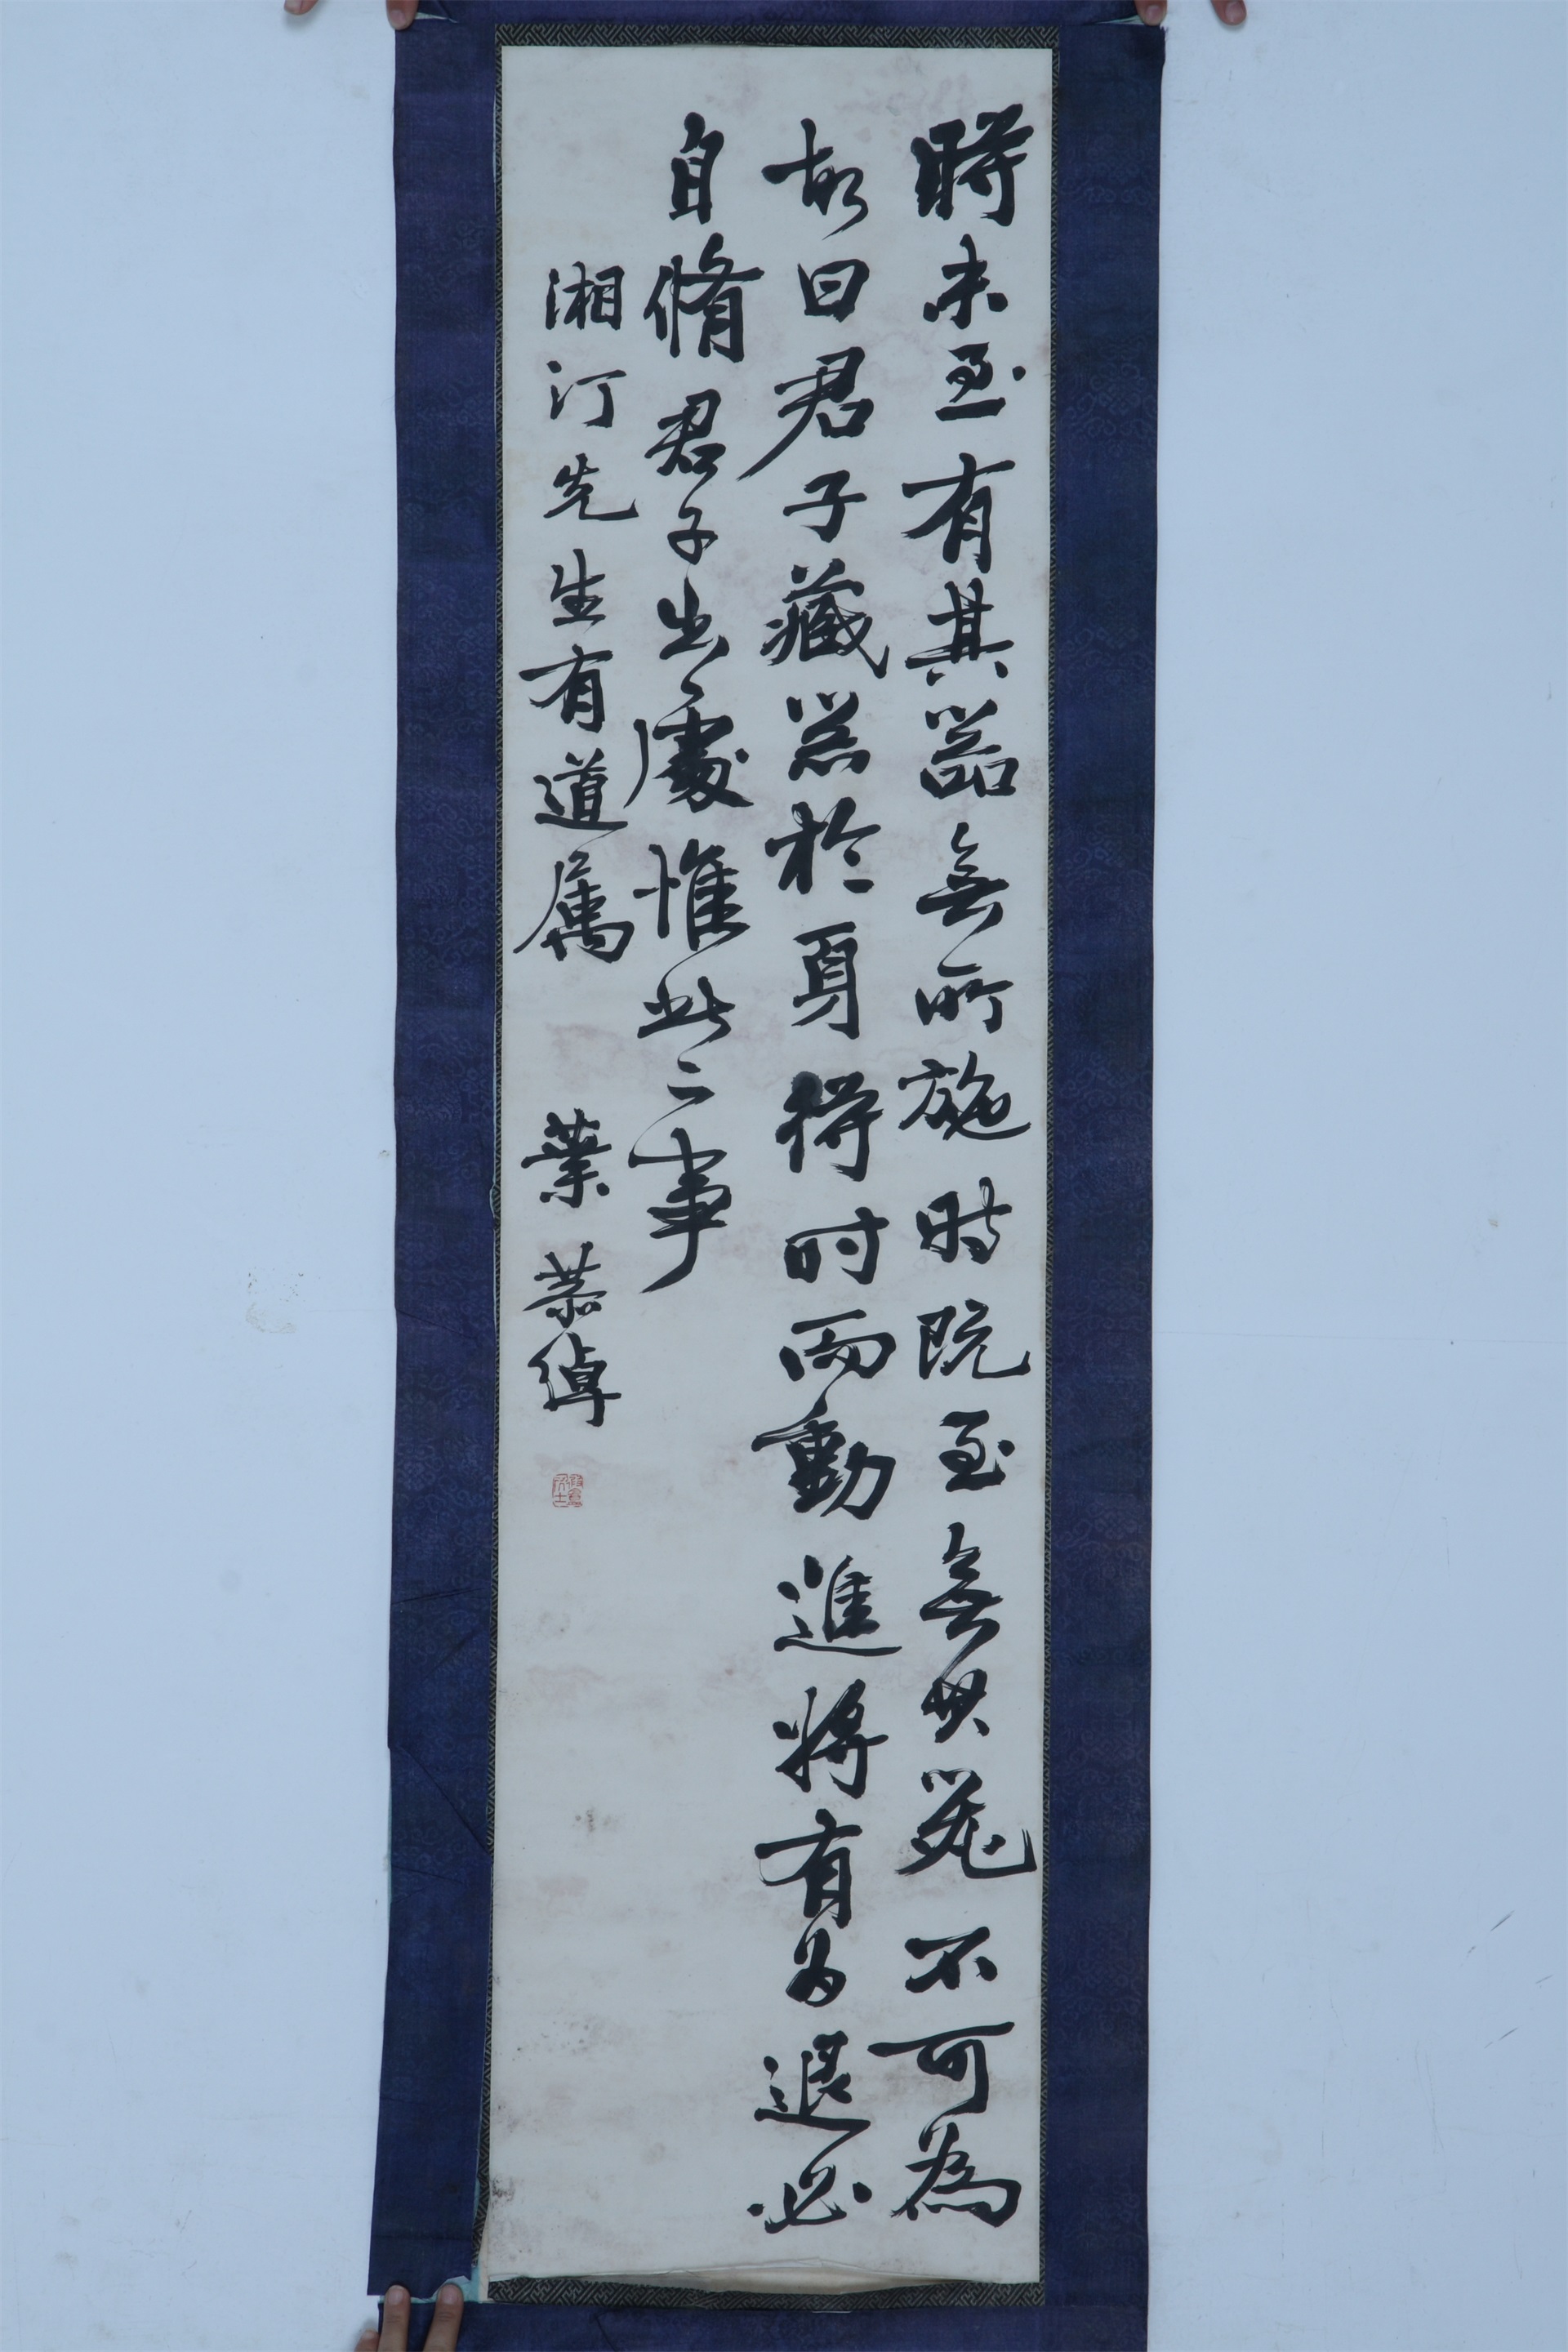 時未至有其器無所施时既至無其器不可為
故曰君子藏器於身得时而動進將有为退必
自脩君子出處惟此二事
湘汀先生有道属
葉恭綽